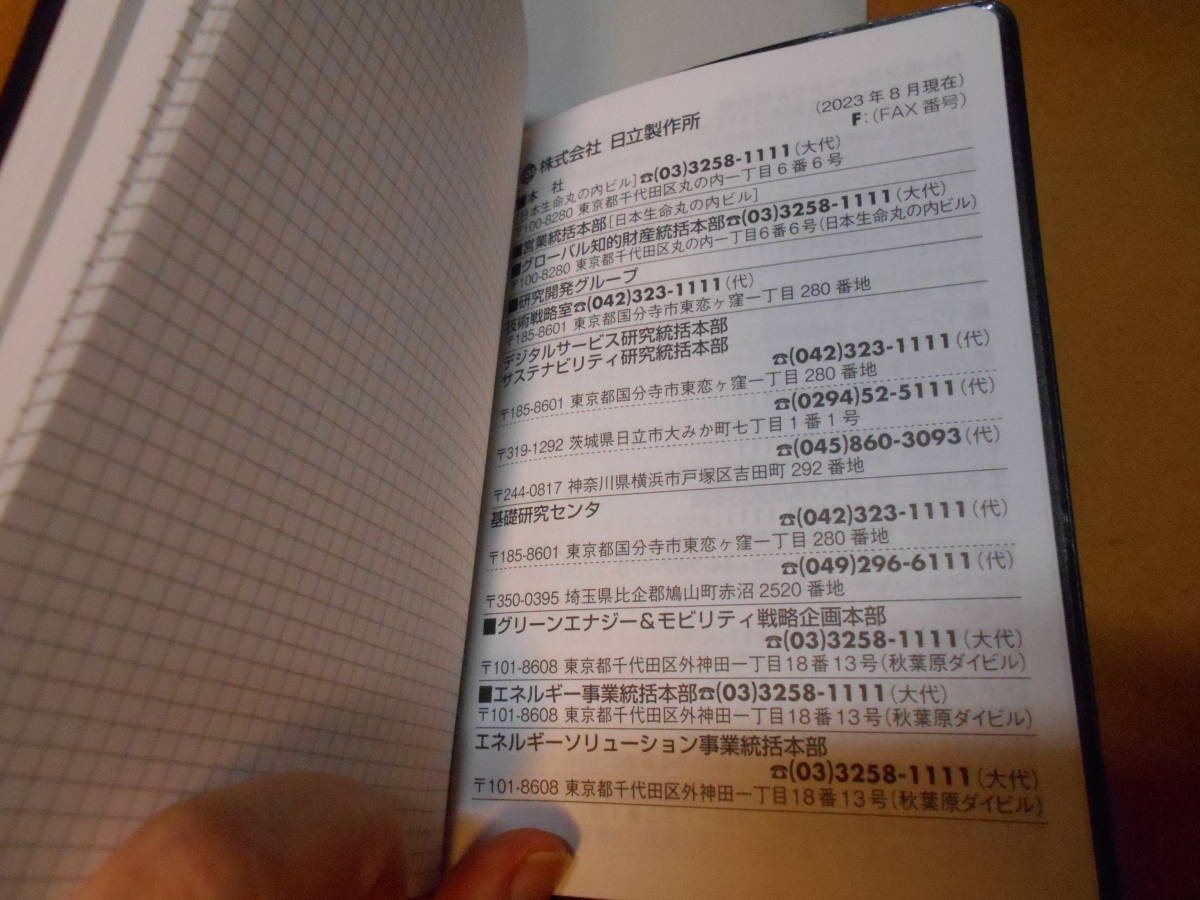 株式会社 日立製作所
(2023年8月現在)
F:(FAX番号)
■本 社
[日本生命丸の内ビル]☎(03)3258-1111(大代)
〒100-8280 東京都千代田区丸の内一丁目6番6号
■営業統括本部[日本生命丸の内ビル]
■グローバル知的財産統括本部☎(03)3258-1111(大代)
〒100-8280 東京都千代田区丸の内一丁目6番6号(日本生命丸の内ビル)
■研究開発グループ
技術戦略室☎(042)323-1111(代)
〒185-8601 東京都国分寺市東恋ヶ窪一丁目280番地
デジタルサービス研究統括本部
サステナビリティ研究統括本部
☎(042)323-1111(代)
〒185-8601 東京都国分寺市東恋ヶ窪一丁目280番地
☎(0294)52-5111(代)
〒319-1292 茨城県日立市大みか町七丁目1番1号
☎(045)860-3093(代)
〒244-0817 神奈川県横浜市戸塚区吉田町292番地
基礎研究センタ
☎(042)323-1111(代)
〒185-8601 東京都国分寺市東恋ヶ窪一丁目280番地
☎(049)296-6111(代)
〒350-0395 埼玉県比企郡鳩山町赤沼2520番地
■グリーンエナジー&モビリティ戦略企画本部
☎(03)3258-1111(大代)
〒101-8608 東京都千代田区外神田一丁目18番13号(秋葉原ダイビル)
■エネルギー事業統括本部☎(03)3258-1111(大代)
〒101-8608 東京都千代田区外神田一丁目18番13号(秋葉原ダイビル)
エネルギーソリューション事業統括本部
☎(03)3258-1111(大代)
〒101-8608 東京都千代田区外神田一丁目18番13号(秋葉原ダイビル)